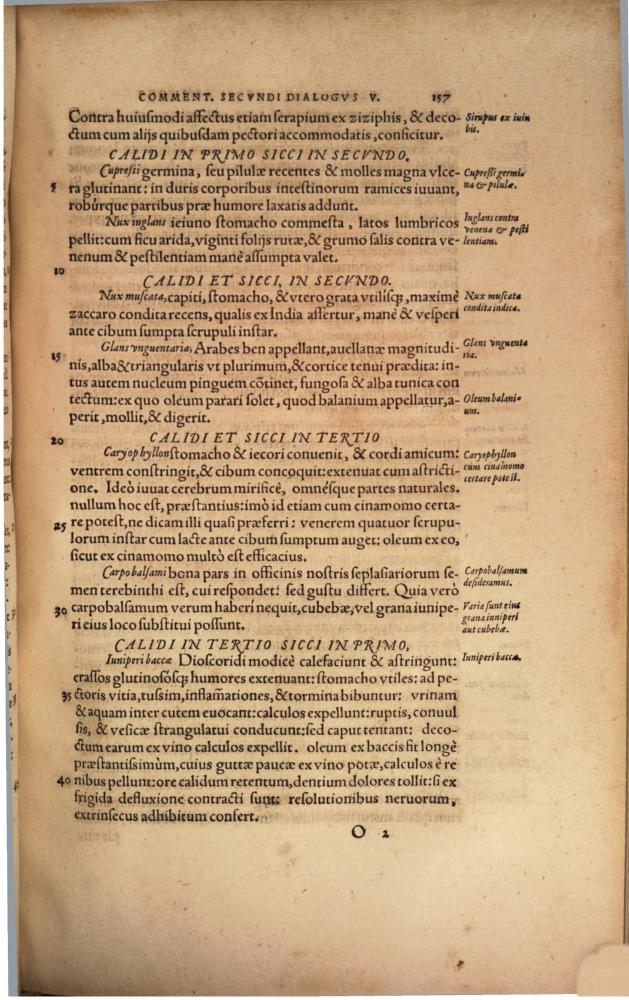 COMMENT. SECVNDI DIALOGVS V. 157
Contra huiusmodi affectus etiam serapium ex ziziphis, & deco-
ctum cum alijs quibusdam pectori accommodatis, conficitur.
Sirupus ex iuiu
bis.
CALIDI IN PRIMO SICCI IN SECVNDO.
Cupressi germina, seu pilulæ recentes & molles magna vlce-
5 ra glutinant: in duris corporibus intestinorum ramices iuuant,
robúrque partibus præ humore laxatis addunt.
Cupressi germi
na & pilulæ.
Nux iuglans ieiuno stomacho commesta, latos lumbricos
pellit: cum ficu arida, viginti folijs rutæ, & grumo salis contra ve-
nenum & pestilentiam manè assumpta valet.
Iuglans contra
venena & pesti
lentiam.
10
CALIDI ET SICCI, IN SECVNDO.
Nux muscata, capiti, stomacho, & vtero grata vtilisq;, maximè
zaccaro condita recens, qualis ex India affertur, manè & vesperi
ante cibum sumpta scrupuli instar.
Nux muscata
condita indica.
Glans vnguentaria, Arabes ben appellant, auellanæ magnitudi-
15 nis, alba & triangularis vt plurimum, & cortice tenui prædita: in-
tus autem nucleum pinguem cõtinet, fungosa & alba tunica con
tectum: ex quo oleum parari solet, quod balanium appellatur, a-
perit, mollit, & digerit.
Glans vnguenta
ria.
Oleum balani-
um.
20 CALIDI ET SICCI IN TERTIO
Caryophyllon stomacho & iecori conuenit, & cordi amicum:
ventrem constringit, & cibum concoquit: extenuat cum astricti-
one. Ideò iuuat cerebrum mirificè, omnésque partes naturales.
nullum hoc est, præstantius: imò id etiam cum cinamomo certa-
25 re potest, ne dicam illi quasi præferri: venerem quatuor scrupu-
lorum instar cum lacte ante cibum sumptum auget: oleum ex eo,
sicut ex cinamomo multò est efficacius.
Caryophyllon
cum cinamomo
certare potest.
Carpobalsami bona pars in officinis nostris seplasiariorum se-
men terebinthi est, cui respondet: sed gustu differt. Quia verò
30 carpobalsamum verum haberi nequit, cubebæ, vel grana iunipe-
ri eius loco substitui possunt.
Carpobalsamum
desideramus.
Varia sunt eius
grana iuniperi
aut cubebæ.
CALIDI IN TERTIO SICCI IN PRIMO.
Iuniperi baccæ Dioscoridi modicè calefaciunt & astringunt:
crassos glutinosósq; humores extenuant: stomacho vtiles: ad pe-
35 ctoris vitia, tussim, inflãmationes, & tormina bibuntur: vrinam
& aquam inter cutem euocant: calculos expellunt: ruptis, conuul
sis, & vesicæ strangulatui conducunt: sed caput tentant: deco-
ctum earum ex vino calculos expellit. oleum ex baccis fit longè
præstantissimùm, cuius guttæ paucæ ex vino potæ, calculos è re
40 nibus pellunt: ore calidum retentum, dentium dolores tollit: si ex
frigida defluxione contracti sunt: resolutionibus neruorum,
extrinsecus adhibitum confert.
Iuniperi baccæ.
O 2